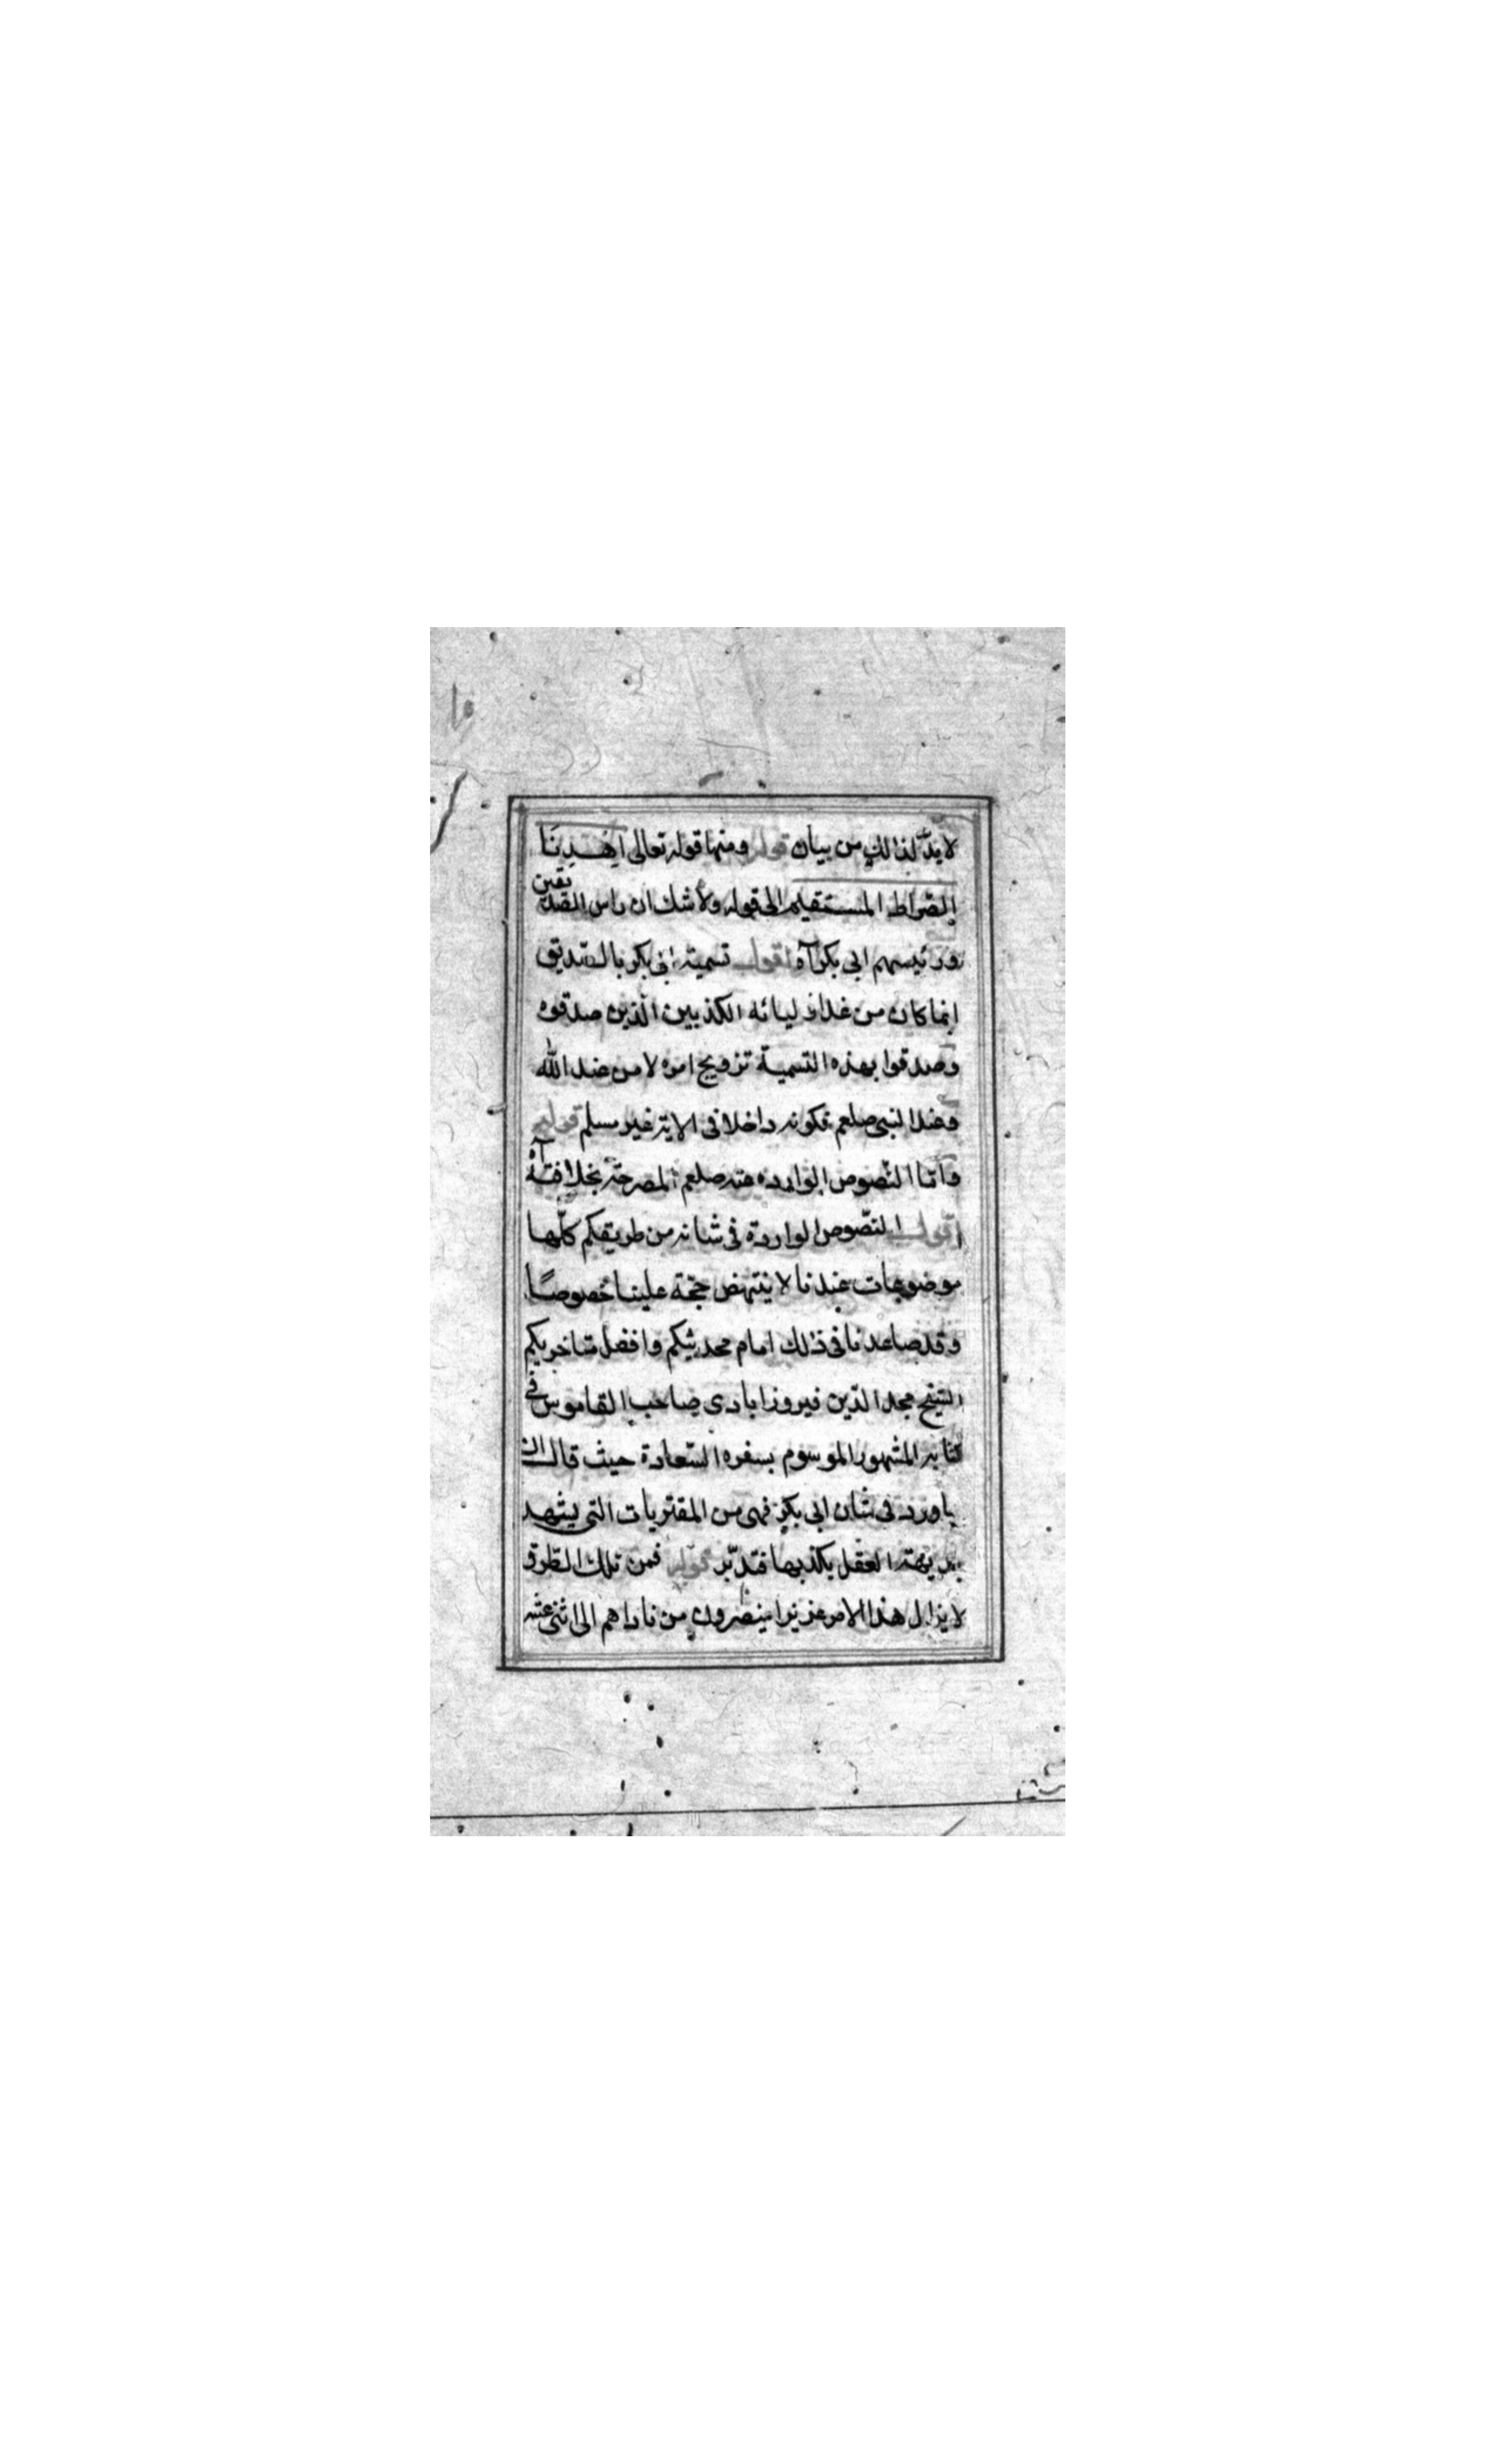 لا بدّ لذالك من بيان قوله ومنها قوله تعالى اِهْدِنَا
الصّراط المستقيم الى قوله ولا شك ان راس الصّديقين
ورئيسهم ابى بكر آه اقول تسمية ابى بكر بالصّديق
انما كان من عند اوليائه الكذبين الّذين صدقوه
وصدقوا بهذه التسمية تزويج امره لا من عند الله
وعند النبى صلعم فكونه داخلا فى الاية غير مسلم قوله
وامّا النّصوص الوارده عنه صلعم المصرحة بخلافته آه
اقول النصّوص الواردة فى شانه من طريقكم كلّها
موضوعات عندنا لا ينتهض حجّة علينا خصوصًا
وقد صاعدنا فى ذلك امام محدثيكم وافضل متاخريكم
الشيخ مجد الدّين فيروزابادى صاحب القاموس فى
كتابه المشهور الموسوم بسفره السّعادة حيث قال ان
ماورد فى شان ابى بكر فهى من المفتريات التى يشهد
بديهة العقل بكذبها فتدبّر قوله فمن تلك الطرق
لا يزال هذا الامر عزيزا ينصرون من ناداهم الى اثنى عشر